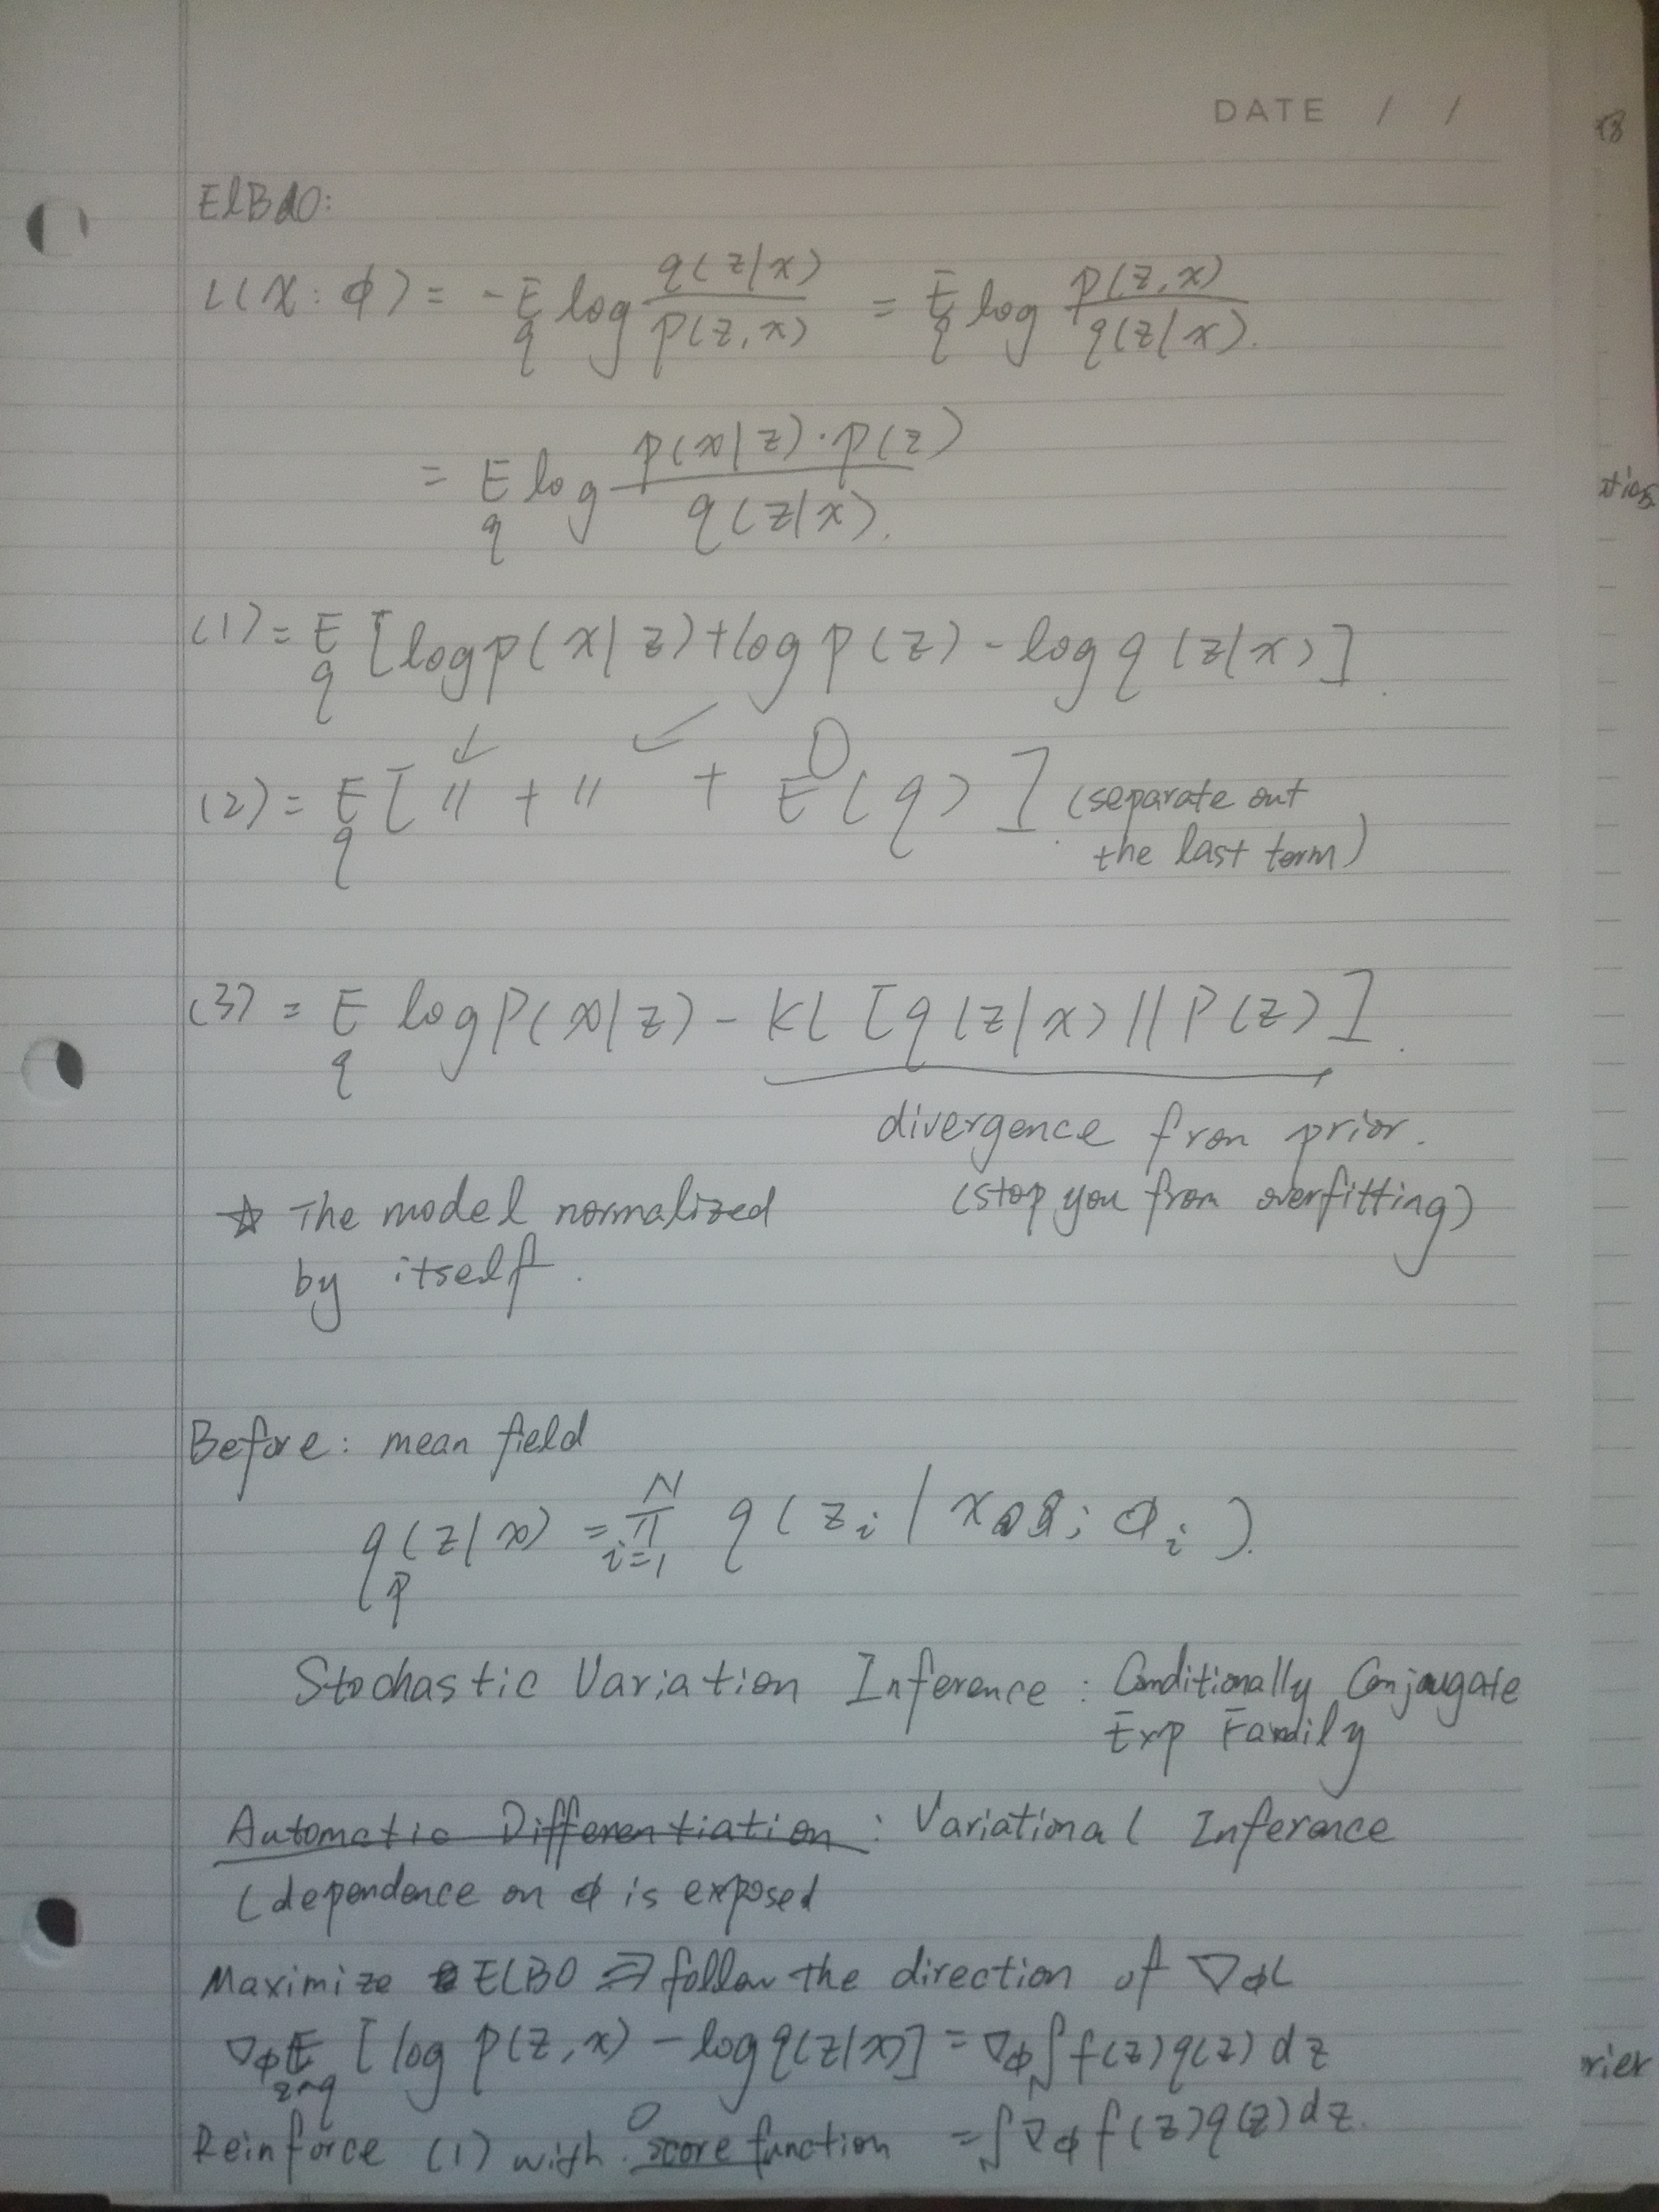 DATE / /
ElBO:
L(X : φ) = - E_q log q(z|x) / p(z,x) = E_q log p(z,x) / q(z|x).
= E_q log p(x|z)·p(z) / q(z|x).
(1) = E_q [log p(x|z) + log p(z) - log q(z|x)].
(2) = E_q [ 〃 + 〃 + E(q) ]. (separate out
the last term)
(3) = E_q log P(x|z) - KL [q(z|x) || P(z)].
divergence from prior.
(stop you from overfitting)
☆ The model normalized
by itself.
Before: mean field
q_p(z|x) = π_{i=1}^{N} q(z_i | x; φ_i).
Stochastic Variation Inference : Conditionally Conjugate
Exp Family
Automatic Differentiation : Variational Inference
(dependence on φ is exposed
Maximize ELBO ⇒ follow the direction of ∇φL
∇φ E_{z~q} [log p(z,x) - log q(z|x)] = ∇φ∫f(z)q(z)dz
Reinforce (1) with score function = ∫∇φ f(z)q(z)dz.